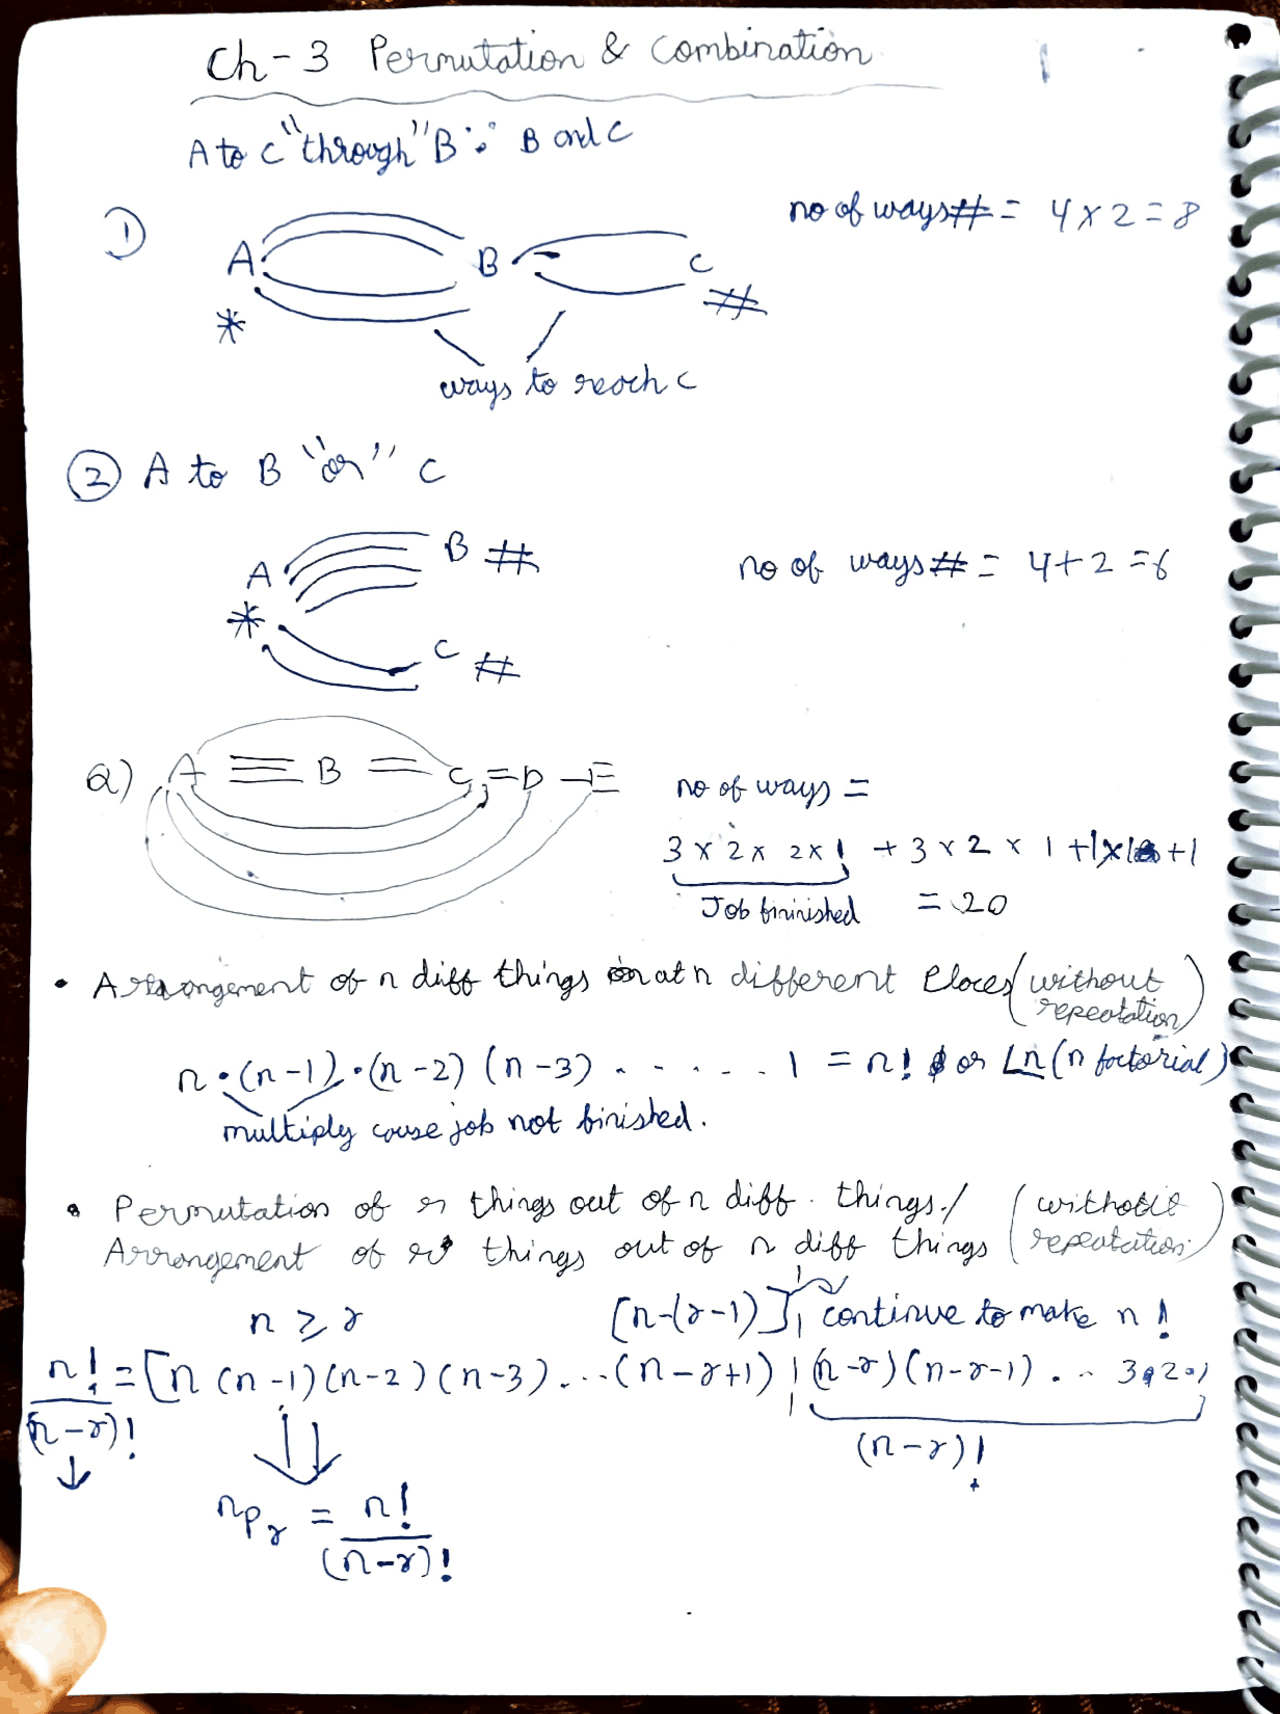 Ch-3 Permutation & Combination
A to C "through" B ∵ B and C
1)
no of ways# = 4 x 2 = 8
A B C
* #
ways to reach C
② A to B "or" C
B #
A
no of ways# = 4+2 = 6
*
C #
Q) A ≡ B = C = D - E
no of ways =
3 x 2 x 2 x 1 + 3 x 2 x 1 + 1 x 1 + 1
Job fininished = 20
• Arrangement of n diff things at n different Places (without repeatation)
n·(n-1)·(n-2)(n-3)......1 = n! or Ln (n factorial)
multiply cause job not finished.
• Permutation of r things out of n diff. things./ (without
Arrangement of r things out of n diff things repeatation)
n ≥ r [n-(r-1)] continue to make n!
n!/(n-r)! = [n (n-1)(n-2)(n-3)...(n-r+1) | (n-r)(n-r-1)... 3.2.1
(n-r)!
nPr = n!/(n-r)!